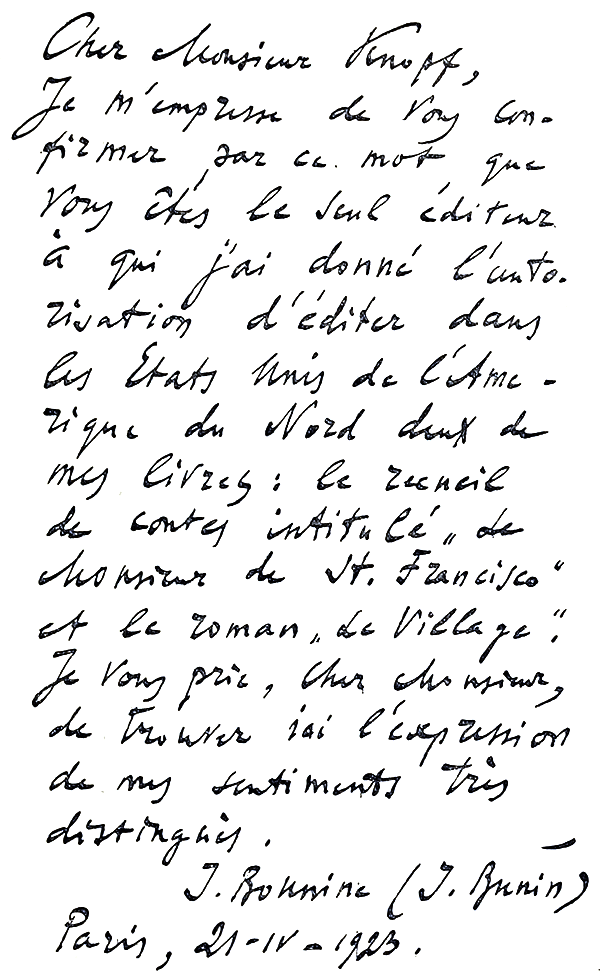 Cher Monsieur Knopf,
Je m'empresse de vous con-
firmer par ce mot que
vous êtes le seul éditeur
à qui j'ai donné l'auto-
risation d'éditer dans
les Etats Unis de l'Amé-
rique du Nord deux de
mes livres : le recueil
de contes intitulé „Le
Monsieur de St. Francisco“
et le roman „Le Village“.
Je vous prie, cher Monsieur,
de trouver ici l'expression
de mes sentiments très
distingués.
J. Bounine (J. Bunin)
Paris, 21-IV-1923.